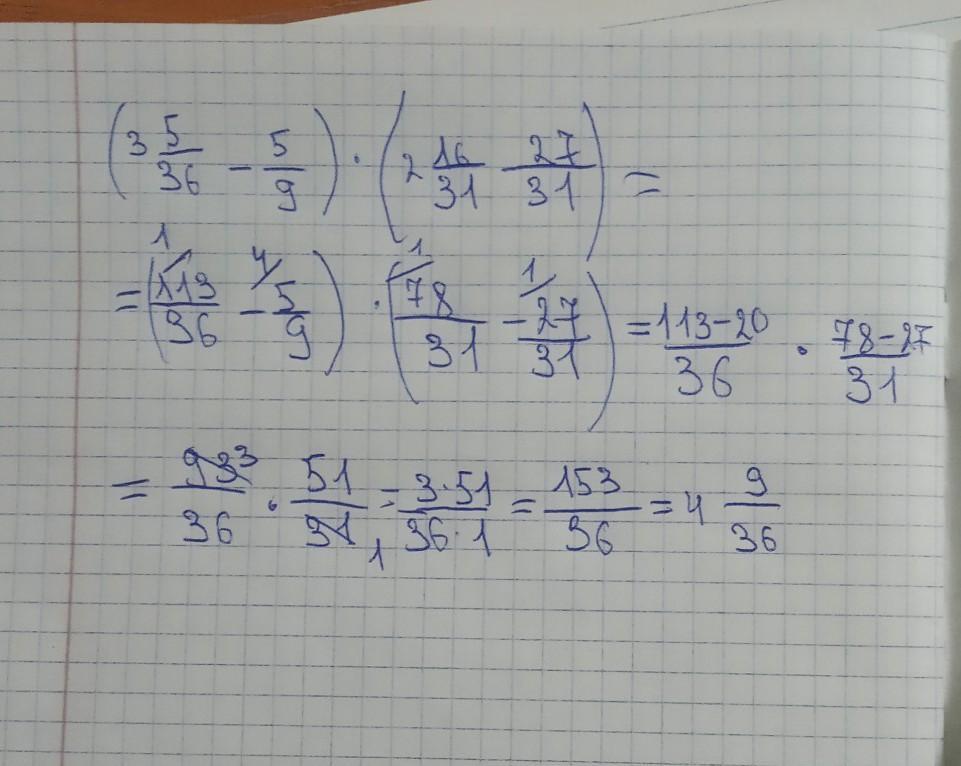 (3 5/36 - 5/9) · (2 16/31 - 27/31) =
= (113/36 - 5/9) · (78/31 - 27/31) = (113-20)/36 · (78-27)/31
= 93/36 · 51/31 = (3·51)/(36·1) = 153/36 = 4 9/36